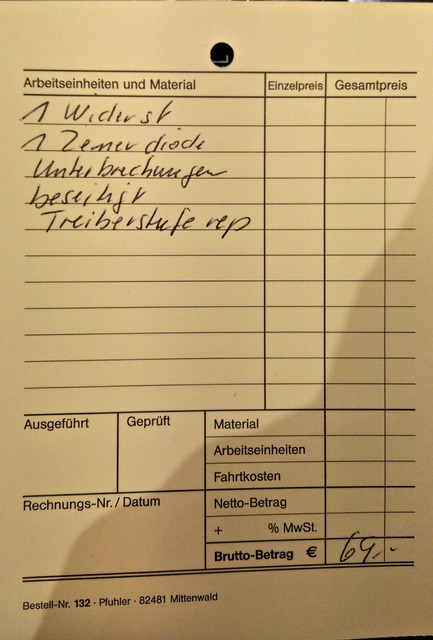 Arbeitseinheiten und Material Einzelpreis Gesamtpreis
1 Widerst
1 Zenerdiode
Unterbrechungen
beseitigt
Treiberstufe rep
Ausgeführt Geprüft Material
Arbeitseinheiten
Fahrtkosten
Rechnungs-Nr. / Datum Netto-Betrag
+ % MwSt.
Brutto-Betrag € 69,-
Bestell-Nr. 132 · Pfuhler · 82481 Mittenwald